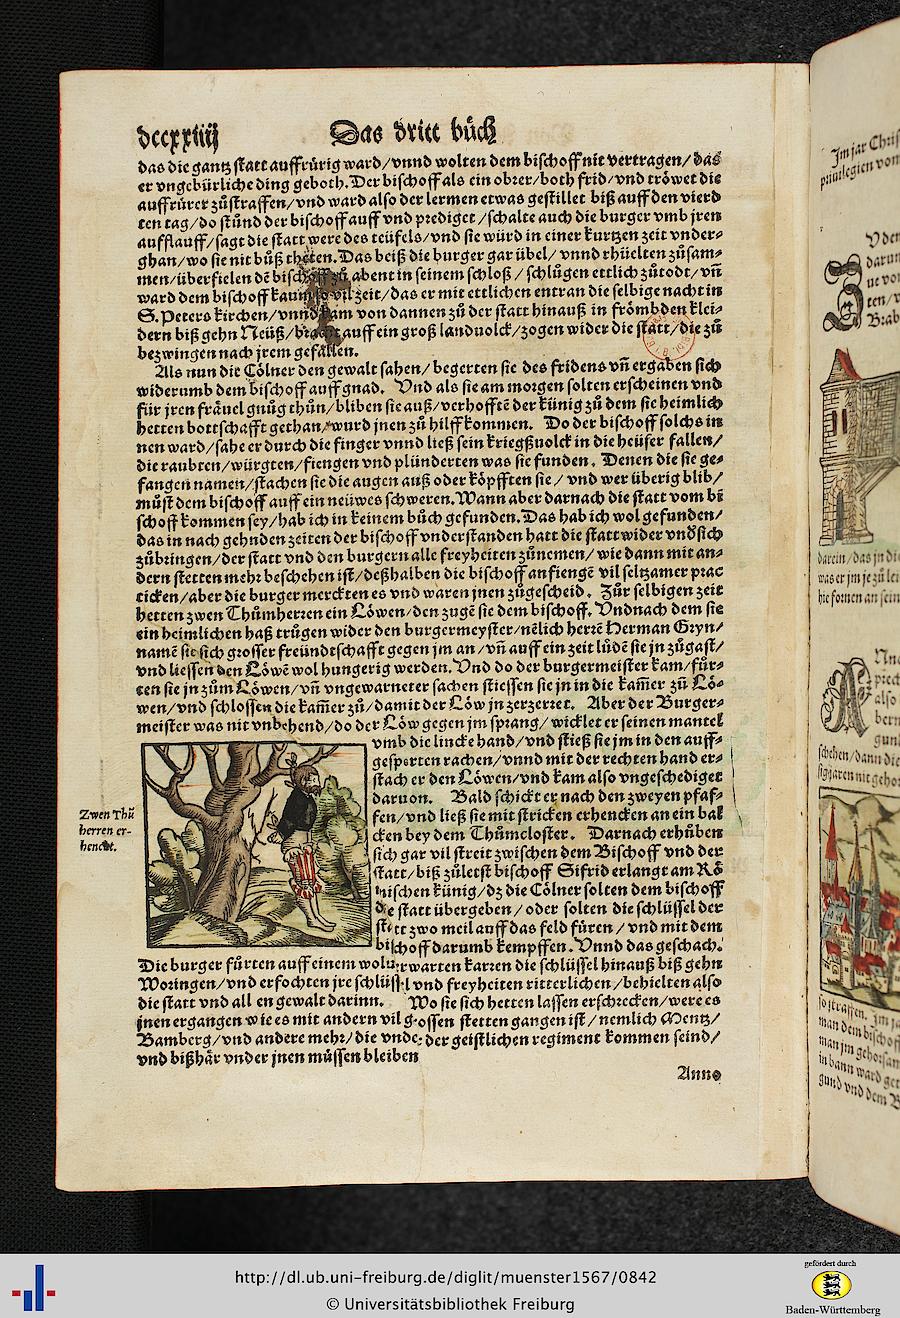 dccxxiiij
Das dritt bůch
das die gantz statt auffrürig ward/vnnd wolten dem bischoff nit vertragen/das
er vngebürliche ding geboth. Der bischoff als ein obrer/both frid/vnd tröwet die
auffrürer zůstraffen/vnd ward also der lermen etwas gestillet biß auff den vierd
ten tag/do stůnd der bischoff auff vnd prediget/schalte auch die burger vmb jren
aufflauff/sagt die statt were des teüfels/vnd sie würd in einer kurtzen zeit vnder-
ghan/wo sie nit bůß theten. Das beiß die burger gar übel/vnnd rhüelten zůsam-
men/überfielen dē bischoff zů abent in seinem schloß/schlůgen ettlich zůtodt/vñ
ward dem bischoff kaum so vil zeit/das er mit ettlichen entran die selbige nacht in
S. Peters kirchen/vnnd kam von dannen zů der statt hinauß in frömbden klei-
dern biß gehn Neüß/bracht auff ein groß landuolck/zogen wider die statt/die zů
bezwingen nach jrem gefallen.
Als nun die Cölner den gewalt sahen/begerten sie des fridens vñ ergaben sich
widerumb dem bischoff auff gnad. Vnd als sie am morgen solten erscheinen vnd
für jren fräuel gnůg thůn/bliben sie auß/verhofftē der künig zů dem sie heimlich
hetten bottschafft gethan/wurd jnen zů hilff kommen. Do der bischoff solchs in
nen ward/sahe er durch die finger vnnd ließ sein kriegßuolck in die heüser fallen/
die raubten/würgten/fiengen vnd plünderten was sie funden. Denen die sie ge-
fangen namen/stachen sie die augen auß oder köpfften sie/vnd wer überig blib/
můst dem bischoff auff ein neüwes schweren. Wann aber darnach die statt vom bi
schoff kommen sey/hab ich in keinem bůch gefunden. Das hab ich wol gefunden/
das in nach gehnden zeiten der bischoff vnderstanden hatt die statt wider vndsich
zůbringen/der statt vnd den burgern alle freyheiten zůnemen/wie dann mit an-
dern stetten mehr beschehen ist/deßhalben die bischoff anfiengē vil seltzamer prac
ticken/aber die burger merckten es vnd waren jnen zůgescheid. Zůr selbigen zeit
hetten zwen Thůmherren ein Löwen/den zugē sie dem bischoff. Vndnach dem sie
ein heimlichen haß trůgen wider den burgermeyster/nēlich herrē Herman Gryn/
namē sie sich grosser freündtschafft gegen jm an/vñ auff ein zeit lůdē sie jn zůgast/
vnd liessen den Löwē wol hungerig werden. Vnd do der burgermeister kam/fůr-
ten sie jn zům Löwen/vñ vngewarneter sachen stiessen sie jn in die kam̄er zů Lö-
wen/vnd schlossen die kam̄er zů/damit der Löw jn zerzerret. Aber der Burger-
meister was nit vnbehend/do der Löw gegen jm sprang/wicklet er seinen mantel
vmb die lincke hand/vnd stieß sie jm in den auff-
gesperten rachen/vnnd mit der rechten hand er-
stach er den Löwen/vnd kam also vngeschediget
daruon. Bald schickt er nach den zweyen pfaf-
fen/vnd ließ sie mit stricken erhencken an ein bal
cken bey dem Thůmcloster. Darnach erhůben
sich gar vil streit zwischen dem Bischoff vnd der
statt/biß zůletst bischoff Sifrid erlangt am Rö
mischen künig/dz die Cölner solten dem bischoff
die statt übergeben/oder solten die schlüssel der
statt zwo meil auff das feld füren/vnd mit dem
bischoff darumb kempffen. Vnnd das geschach.
Zwen Thů
herren er-
henckt.
Die burger fůrten auff einem woluerwarten karren die schlüssel hinauß biß gehn
Woringen/vnd erfochten jre schlüssel vnd freyheiten ritterlichen/behielten also
die statt vnd all en gewalt darinn. Wo sie sich hetten lassen erschrecken/were es
jnen ergangen wie es mit andern vil grossen stetten gangen ist/nemlich Mentz/
Bamberg/vnd andere mehr/die vnder der geistlichen regiment kommen seind/
vnd bißhär vnder jnen müssen bleiben
Anno
Im jar Chris
priuilegien von
darein/das jn di
was er jm je zů lei
hie fornen an sein
http://dl.ub.uni-freiburg.de/diglit/muenster1567/0842
© Universitätsbibliothek Freiburg
gefördert durch
Baden-Württemberg